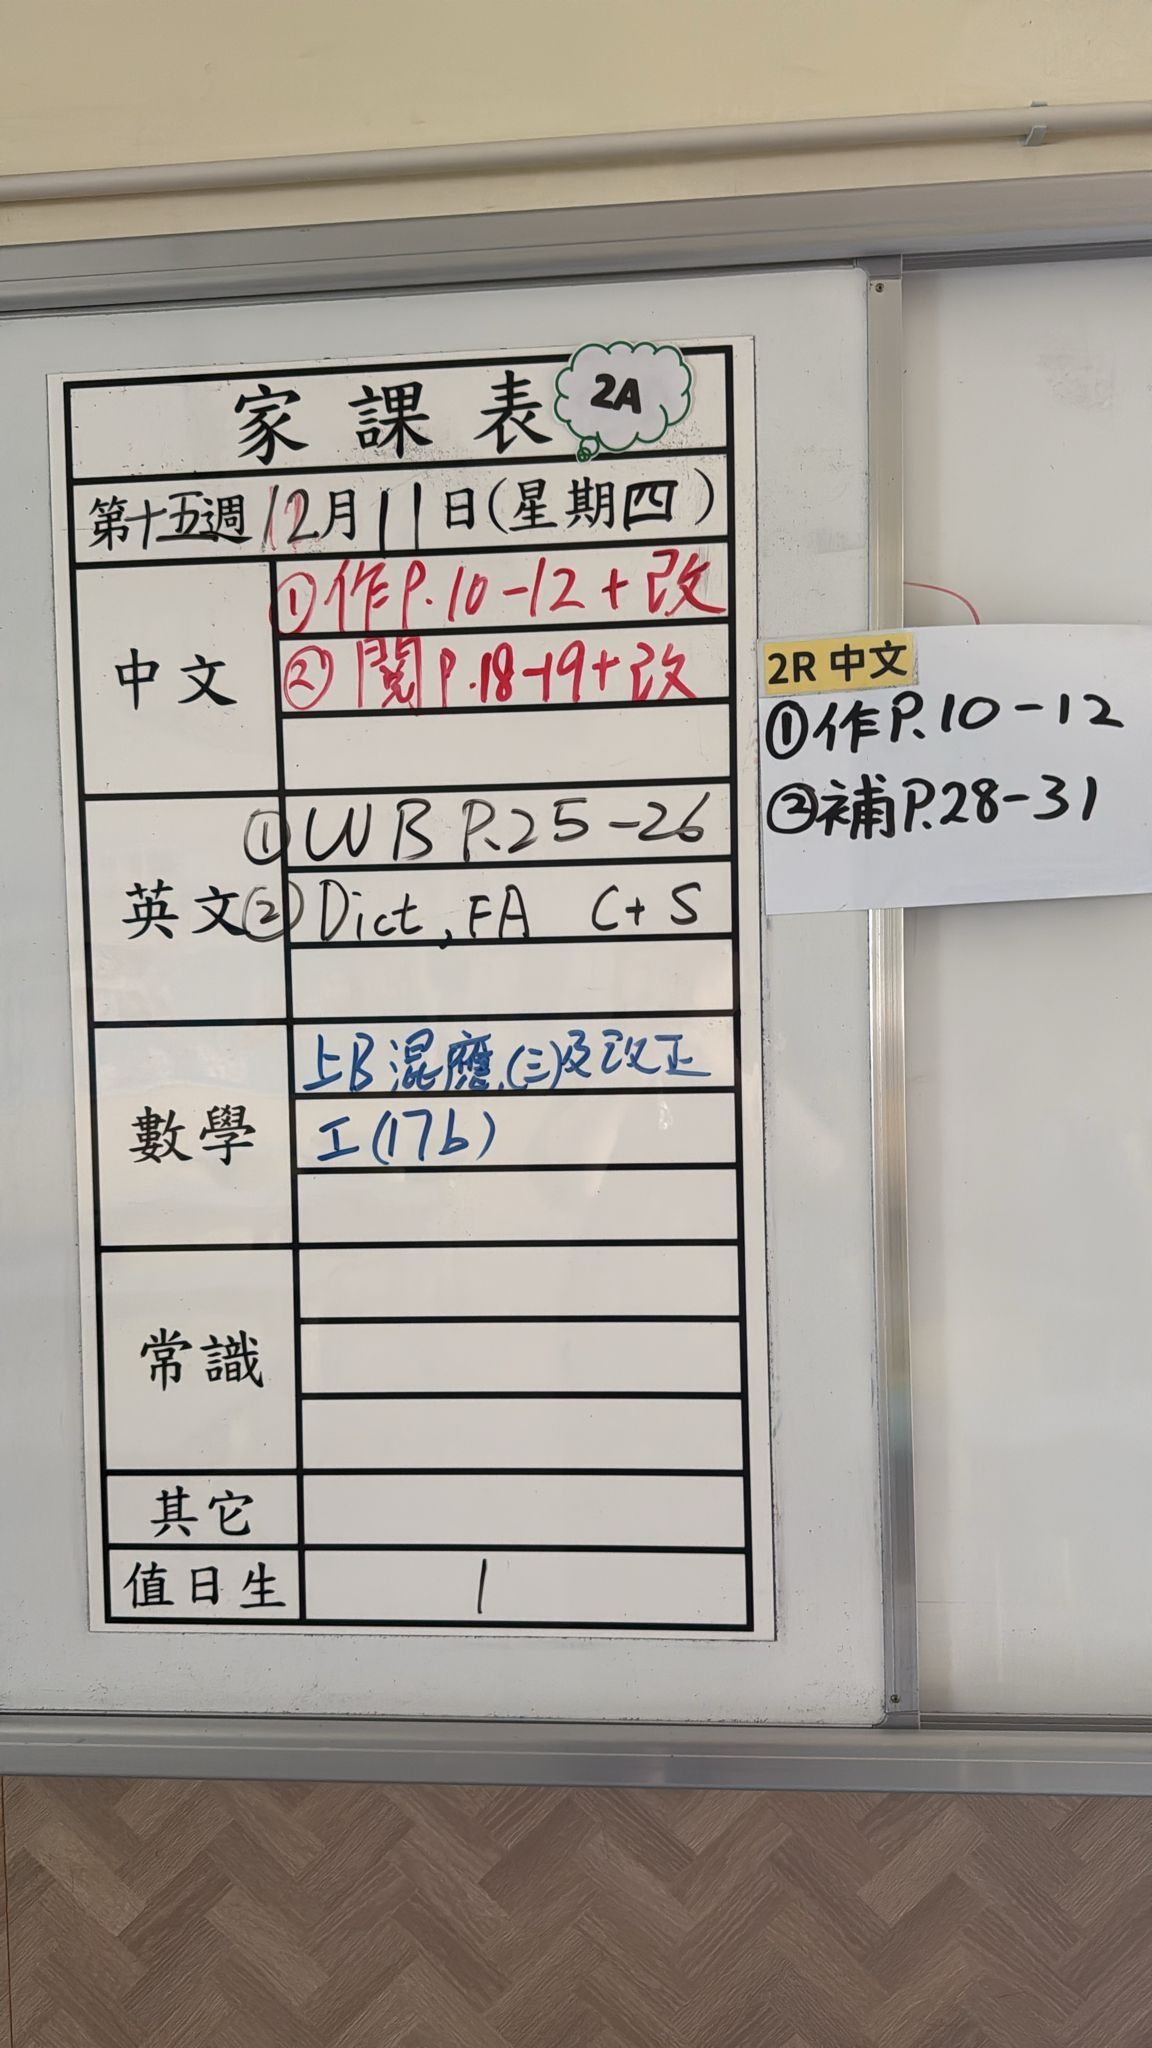 家課表 2A
第十五週 12月11日(星期四)
中文
①作P.10-12+改
②閱P.18-19+改
英文
①WB P.25-26
②Dict, FA C+S
數學
上B 混應.(三)及改正
工(17b)
常識
其它
值日生 1
2R 中文
①作P.10-12
②補P.28-31